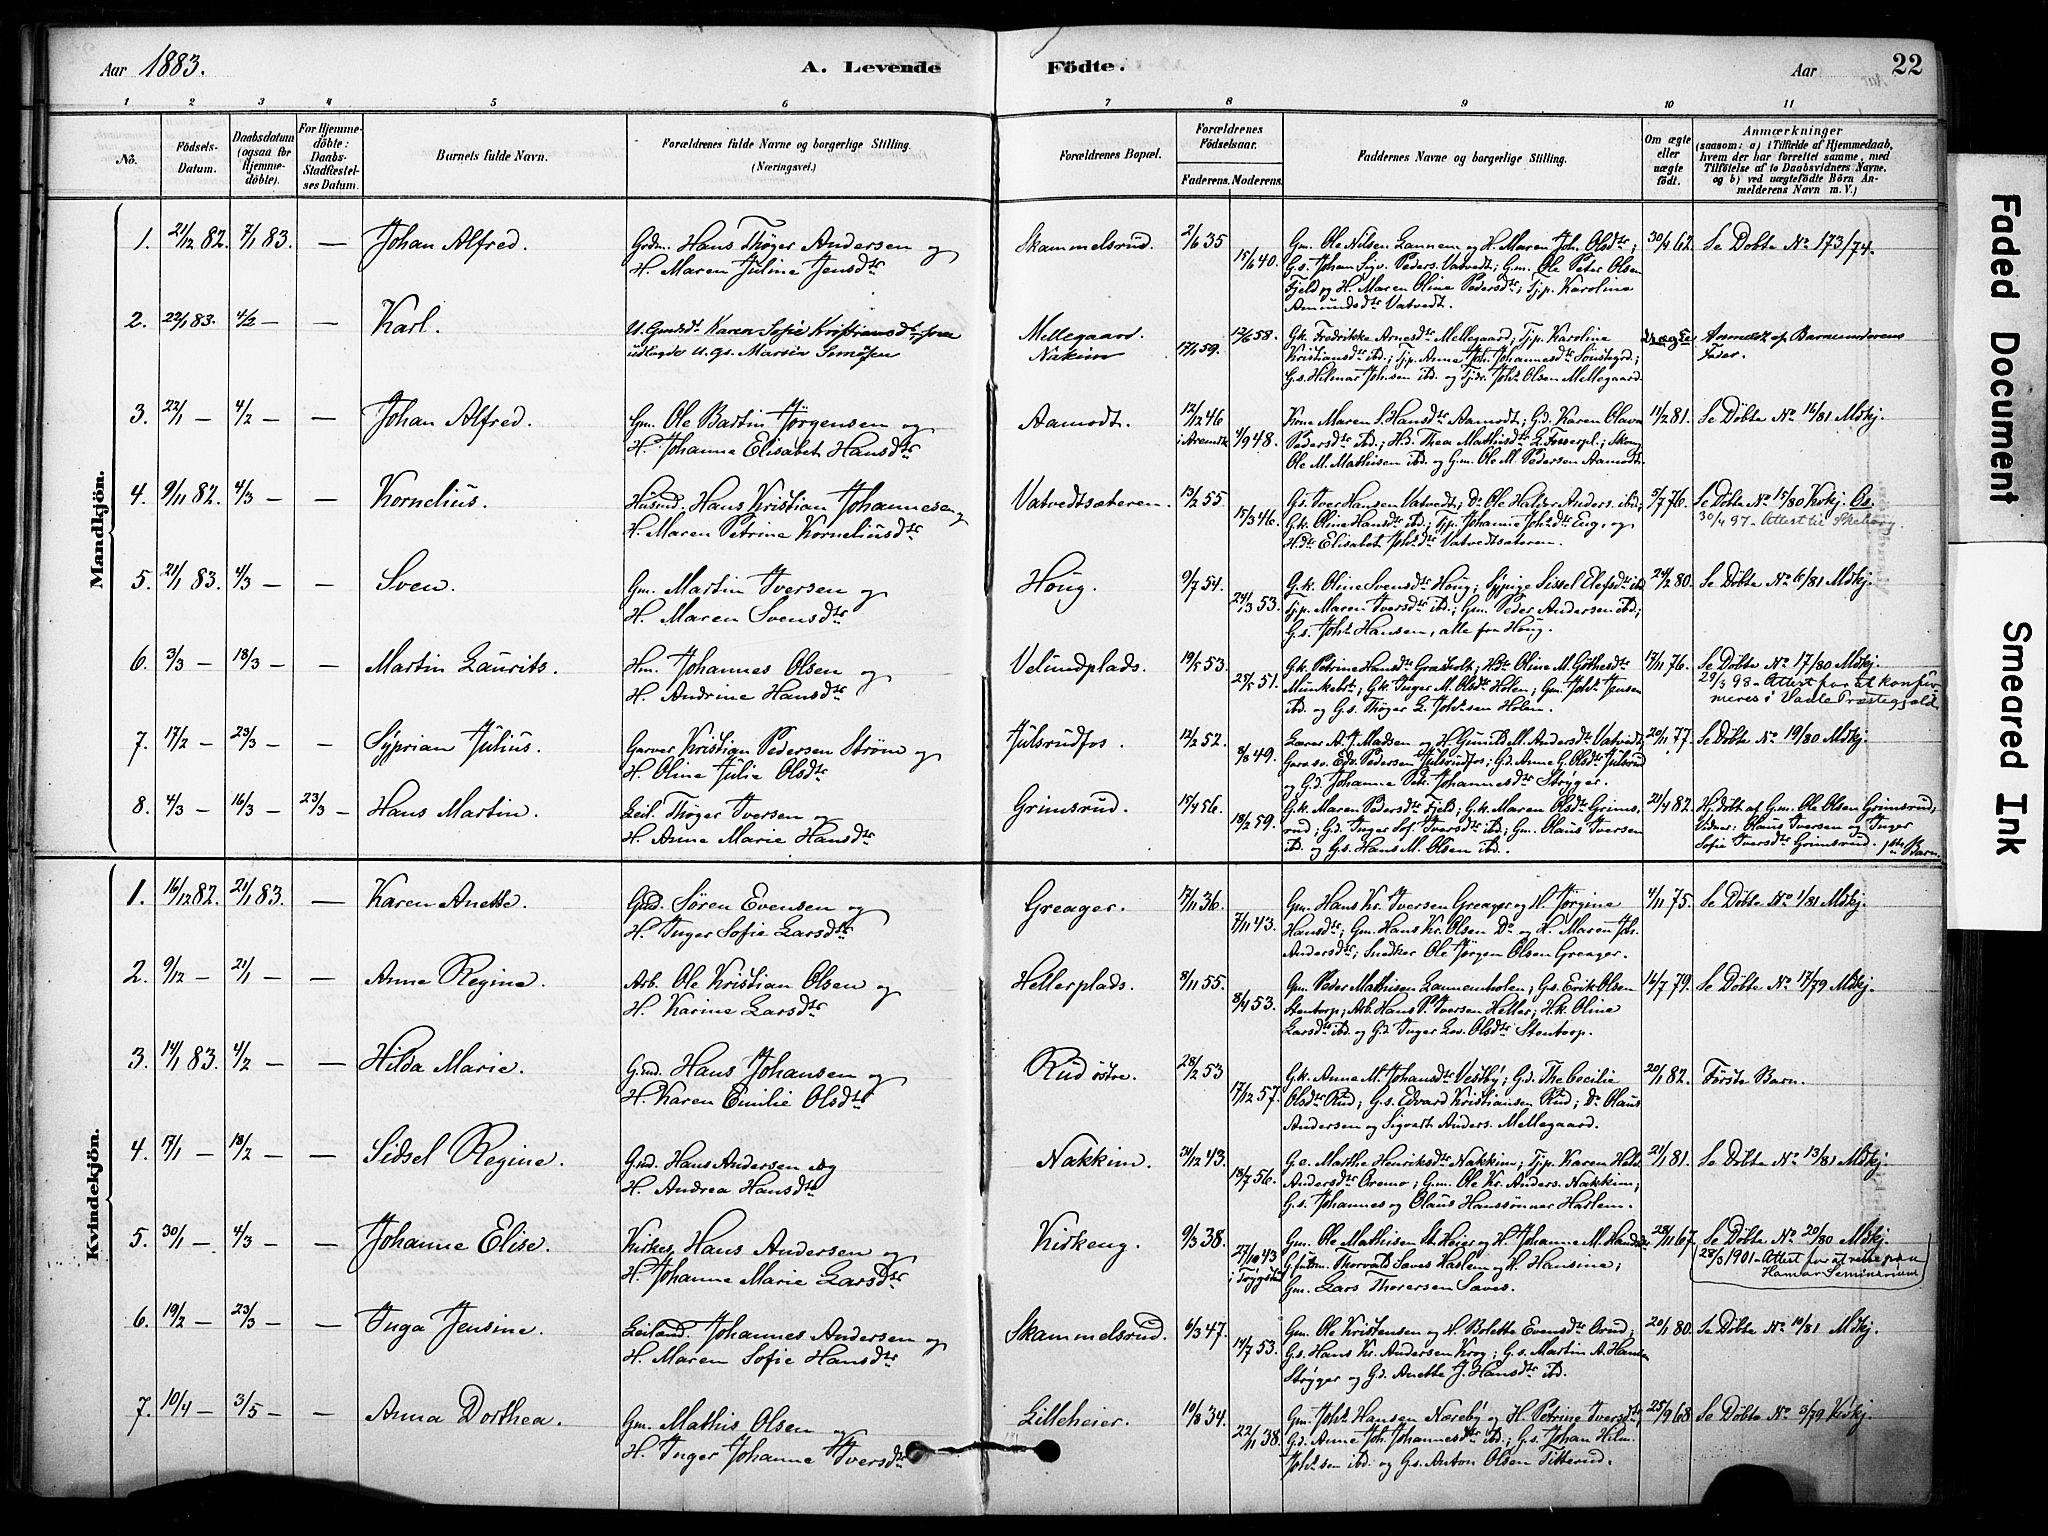 Aar 1883.
A. Levende Födte.
Aar
22
1 2 3 4 5 6 7 8 9 10 11
No.
Födsels-
Datum.
Daabsdatum
(ogsaa for
Hjemme-
döbte).
For Hjemme-
döbte:
Daabs-
Stadfæstel-
ses Datum.
Barnets fulde Navn.
Forældrenes fulde Navne og borgerlige Stilling.
(Næringsvei.)
Forældrenes Bopæl.
Forældrenes
Födselsaar.
Faderens. Moderens.
Faddernes Navne og borgerlige Stilling.
Om ægte
eller
uægte
födt.
Anmærkninger
(saasom: a) i Tilfælde af Hjemmedaab,
hvem der har forrettet samme, med
Tilföielse af to Daabsvidners Navne,
og b) ved uægtefödte Börn An-
melderens Navn m. V.)
Mandkjön.
1. 21/12 82. 7/1 83. — Johan Alfred.
Grdm. Hans Thøger Andersen og
H. Maren Juline Jensdtr
Skammelsrud. 2/6 35 15/6 40.
Gm. Ole Nilsen Lannem og H. Maren Joh. Olsdtr;
G.s. Johan Sigv. Peders. Vatvedt; G.m. Ole Peter Olsen
Fjeld og H. Maren Oline Pedersdtr; Tjp. Karoline
Amundsdtr Vatvedt.
30/4 62. Se Døbte No 173/74.
2. 22/1 83. 4/2 — — Karl.
U. Karen Sofie Kristiansdtr, som
udlagde U. Gs. Martin Simøsen
Mellegaard.
Nakim 12/6 58. 17/1 59.
Gk. Fredrikke Arnesdtr Mellegaard; Tjp. Karoline
Kristiansdtr ibd.; Tjp. Anna Joh. Johannesdtr Sønstegrd.;
G.s. Hilmar Johnsen ibd. og Tjdr. Johs Olsen Mellegaard.
Uægte Anmeldt af Barnemoderens
Fader.
3. 22/1 — 4/2 — — Johan Alfred.
Gm. Ole Bastin Jørgensen og
H. Johanne Elisabet Hansdtr
Aamodt. 12/12 46 i Aremark 4/9 48.
Kone Maren S. Hansdtr Aamodt; G.d. Karen Olava
Pedersdtr ibd.; H.d. Thea Mathisdtr L. Fosserpl.; Skomg.
Ole M. Mathisen ibd. og G.m. Ole M. Pedersen Aamodt.
11/2 81. Se Døbte No 16/81 Mdkj.
4. 9/11 82. 4/3 — — Kornelius.
Husmd. Hans Kristian Johannesen og
H. Maren Petrine Korneliusdtr
Vatvedtsæteren. 13/2 55. 15/3 46.
Gs. Iver Hansen Vatvedt; Do Ole Halvor Anders. ibd.;
G.k. Oline Hansdtr ibd.; Tjp. Johanne Johsdtr Eng, og
H.dtr Elisabet Johsdtr Vatvedtsæteren.
5/7 76. Se Døbte No 15/80 Kvkj. Os.
30/4 97 - Attest til Skiberg.
5. 21/1 83. 4/3 — — Sven.
Gm. Martin Iversen og
H. Maren Svensdtr
Høug. 9/7 54. 24/3 53.
G.k. Oline Svensdtr Høug; Sypige Sissel Elefsdtr ibd
Tjp. Maren Iversdtr ibd.; Gm. Peder Andersen ibd.;
G.s. Johs Hansen, alle fra Høug.
24/2 80. Se Døbte No 6/81 Mdkj.
6. 3/3 — 18/3 — — Martin Laurits.
Hm. Johannes Olsen og
H. Andrine Hansdtr
Velundplads. 19/5 53. 25/5 51.
G.k. Petrine Hansdtr Grasholt; Hdtr Oline M. Gøthesdtr
Münkebl.; G.k. Inger M. Olsdtr Holen; Gm. Johs Jensen
ibd. og G.s. Thøger L. Johsen Holen.
17/11 76. Se Døbte No 17/80 Mdkj.
29/3 98 - Attest for at konfir-
meres i Vaale Præstegjeld
7. 17/2 — 23/3 — — Syprian Julius.
Garver Kristian Pedersen Strøm og
H. Oline Julie Olsdtr
Julsrudfos. 12/2 52. 3/8 49.
Lærer A. J. Madsen og H. Gunild M. Andersdtr Vatvedt,
Garvsv. Edv. Pedersen Julsrudfos; G.d. Anne G. Olsdtr Julsrud
og G.d. Johanne Petr. Johannesdtr Strøyger.
20/11 77. Se Døbte No 19/80 Mdkj.
8. 4/3 — 16/3 — 23/3 — Hans Martin.
Leil. Thøger Iversen og
H. Anne Marie Hansdtr
Grimsrud. 15/4 56. 18/2 59.
G.k. Maren Pedersdtr Fjeld; G.k. Maren Olsdtr Grims-
rud; G.d. Inger Sof. Iversdtr ibd.; Gm. Olaus Iversen
ibd. og G.s. Hans M. Olsen ibd.
21/4 82. Hj.døbt af G.m. Ole Olsen Grimsrud;
Vidner: Olaus Iversen og Inger
Sofie Iversdtr Grimsrud. 1ste Barn.
Kvindekjön.
1. 16/12 82. 21/1 83. — Karen Anette.
Gmd. Søren Evensen og
H. Inger Sofie Larsdtr
Greager. 17/11 36. 7/11 43.
Gm. Hans Kr. Iversen Greager og H. Jørgine
Hansdtr; Gm. Hans Kr. Olsen Do og H. Maren Joh.
Andersdtr; Snedker Ole Jørgen Olsen Greager.
4/11 75. Se Døbte No 1/81 Mdkj.
2. 9/12 — 21/1 — — Anne Regine.
Arb. Ole Kristian Olsen og
H. Karine Larsdtr
Hellerplads. 8/11 55. 8/4 53.
Gm. Peder Mathisen Lannemholen; G.s. Erik Olsen
Stentorp; Arb. Hans P. Iversen Heller; H.k. Oline
Larsdtr ibd. og G.d. Inger Lov. Olsdtr Stentorp.
14/7 79. Se Døbte No 17/79 Mdkj.
3. 14/1 83. 4/2 — — Hilda Marie.
G.md. Hans Johansen og
H. Karen Emilie Olsdtr
Rud østre. 28/2 53 17/12 57.
G.k. Anne M. Johansdtr Vestby; G.d. The Cecilie
Olsdtr Rud; G.s. Edvard Kristiansen Rud; Do Olaus
Andersen og Sigvart Anders. Mellegaard.
20/1 82. Første Barn.
4. 17/1 — 18/2 — — Sidsel Regine.
G.md. Hans Andersen og
H. Andrea Hansdtr
Nakkim. 31/12 43. 18/7 56.
G.e. Marthe Henriksdtr Nakkim; Tjp. Karen Hel.
Andersdtr Oremo; G.m. Ole Kr. Anders. Nakkim;
G.s. Johannes og Olaus Hanssønner Harlem.
21/1 81. Se Døbte No 13/81 Mdkj.
5. 30/1 — 4/3 — — Johanne Elise.
Kirkes. Hans Andersen og
H. Johanne Marie Larsdtr
Kirkeng. 9/3 38. 27/10 43 i Trygstad
Gm. Ole Mathisen St. Heier og H. Johanne M. Hansdtr
G.fusm. Thorvald Saves Haslem og H. Hansine;
Gm. Lars Thoresen Saves.
28/11 67. Se Døbte No 20/80 Mdkj.
28/5 1901 - Attest for at reise paa
Hamar Seminarium
6. 19/2 — 23/3 — — Inga Jensine.
Leilænd. Johannes Andersen og
H. Maren Sofie Hansdtr
Skammelsrud. 6/3 47. 14/7 53.
Gm. Ole Kristensen og H. Bolette Evensdtr Orud;
G.s. Hans Kr. Andersen Krog; G.s. Martin A. Hansen
Strøyger og G.d. Anette J. Hansdtr ibd.
20/1 80. Se Døbte No 10/81 Mdkj.
7. 10/4 — 3/5 — — Anna Dorthea.
Gm. Mathis Olsen og
H. Inger Johanne Iversdtr
Lilleheier. 10/8 34. 22/11 38.
Gm. Johs Hansen Næreby og H. Petrine Iversdtr;
G.d. Anne Joh. Johannesdtr ibd.; G.s. Johan Hilm.
Johs sen ibd. og G.s. Anton Olsen Titterud.
25/9 68. Se Døbte No 3/79 Kvkj.
Faded Document
Smeared Ink